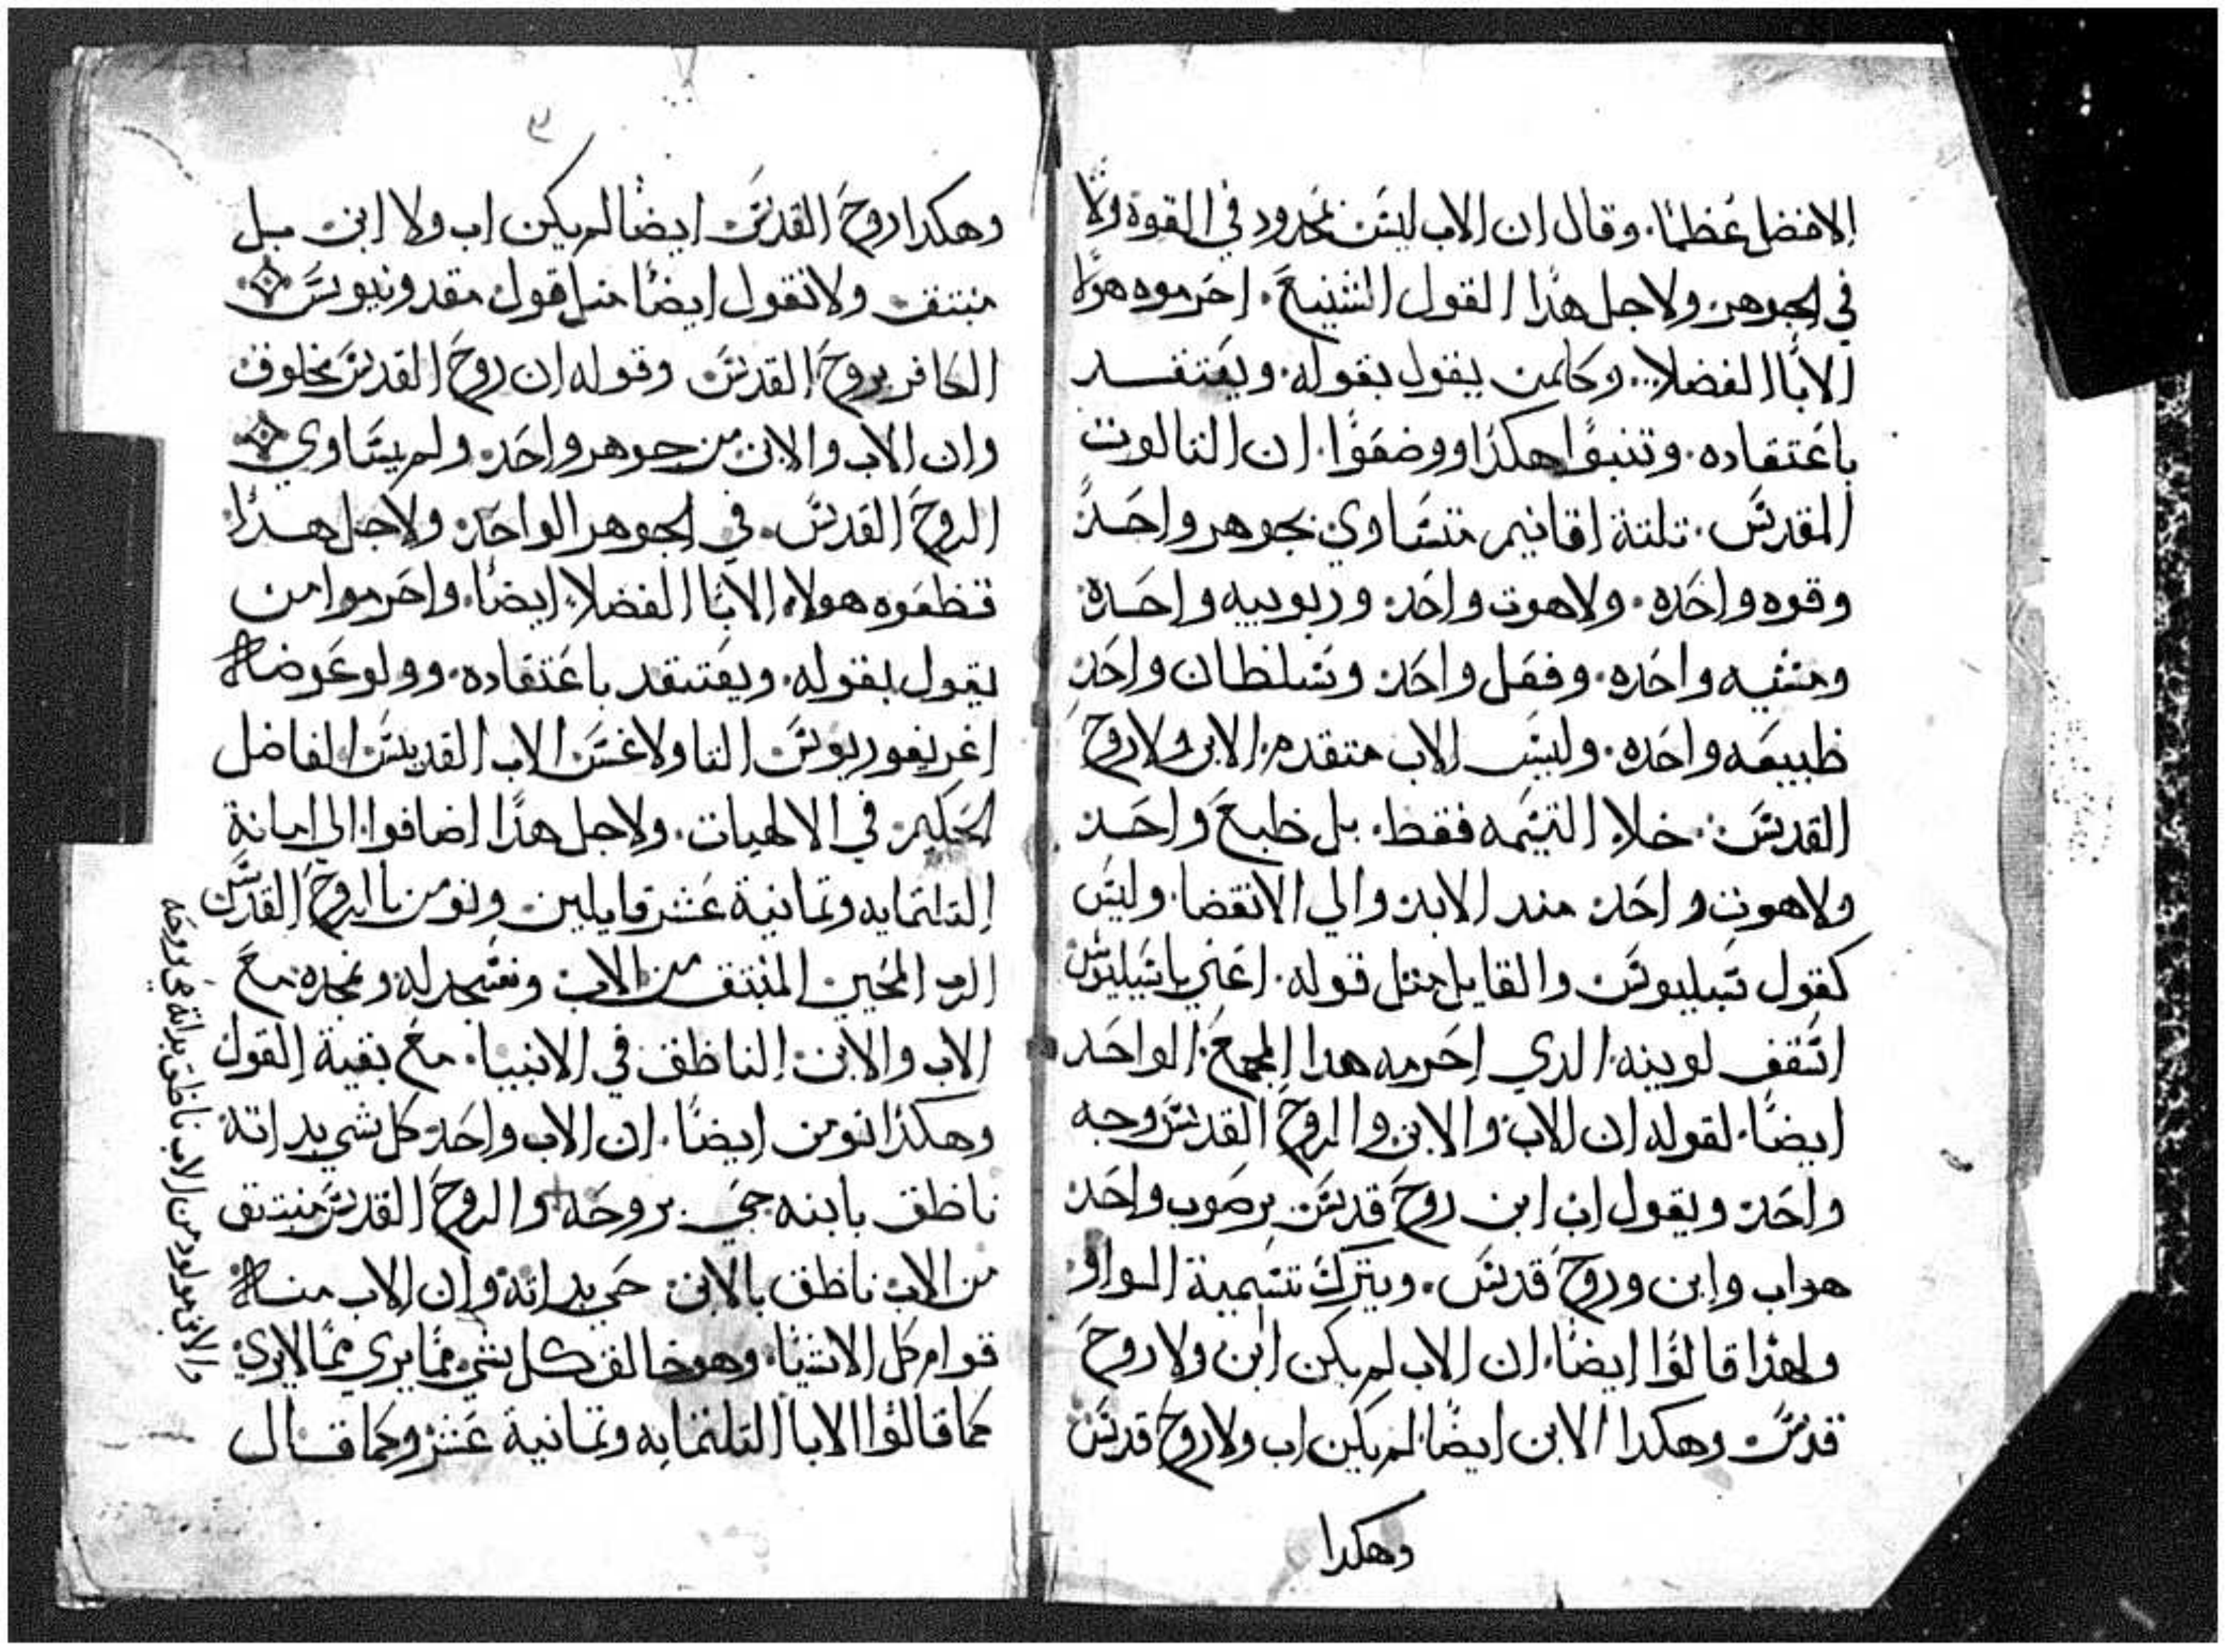 الافضل عظما. وقال ان الاب ليس بمحدود في القوة ولا
في الجوهر. ولاجل هدا القول الشنيع. احرموه هولا
الابا الفضلا. وكلمن يقول بقوله. ويعتقد
باعتقاده. وتبتوا هكدا ووضعوا. ان التالوت
المقدس. تلتة اقانيم متساوي بجوهر واحد
وقوه واحده. ولاهوت واحد. وربوبيه واحده
ومشيه واحده. وفعل واحد وسلطان واحد
طبيعه واحده. وليس الاب متقدم الابن ولا روح
القدس. خلا التسمه فقط. بل طبع واحد
ولاهوت واحد مند الابد والي الانقضا. وليس
كقول سبليوس والقايل متل قوله. اعني باسيليوس
اسقف لوبيه. الدي احرمه هدا المجمع. الواحد
ايضا. لقوله ان الاب والابن والروح القدس وجه
واحد ويقول اب ابن روح قدس برصوب واحد
هو اب وابن وروح قدس. ويترك تسمية الواو
ولهدا قالوا ايضا. ان الاب لم يكن ابن ولا روح
قدس وهكدا الابن ايضا. لم يكن اب ولا روح قدس
وهكدا
٣
وهكدا روح القدس ايضا لم يكن اب ولا ابن بل
منبتق ولا نقول ايضا متل قول مقدونيوس
الكافر بروح القدس وقوله ان روح القدس مخلوق
وان الاب والابن من جوهر واحد. ولم يساوي
الروح القدس. في الجوهر الواحد ولاجل هدا
قطعوه هولاء الابا الفضلا ايضا. واحرموا من
يقول بقوله. ويعتقد باعتقاده. وولوا عوضه
اغريغوريوس التاولاغس الاب القديس الفاضل
الحكيم في الالهيات. ولاجل هدا اضافوا. الى امانة
التلتمايه وتمانية عشر قايلين ونومن باالروح القدس
الرب المحيي المنبتق من الاب ونسجد له ونمجده مع
الاب والابن الناطق في الانبيا. مع بقية القول
وهكدا نومن ايضا. ان الاب واحد كل شي بداته
ناطق بابنه حي بروحه والروح القدس منبتق
من الاب ناطق بالابن حي بداته وان الاب منه
قوام كل الاشيا. وهو خالق كل شي مما يرى مما لا يرى
كما قالوا الابا التلتمايه وتمانية عشر وكما قال
والابن مولود من الاب ناطق بداته حي بروحه